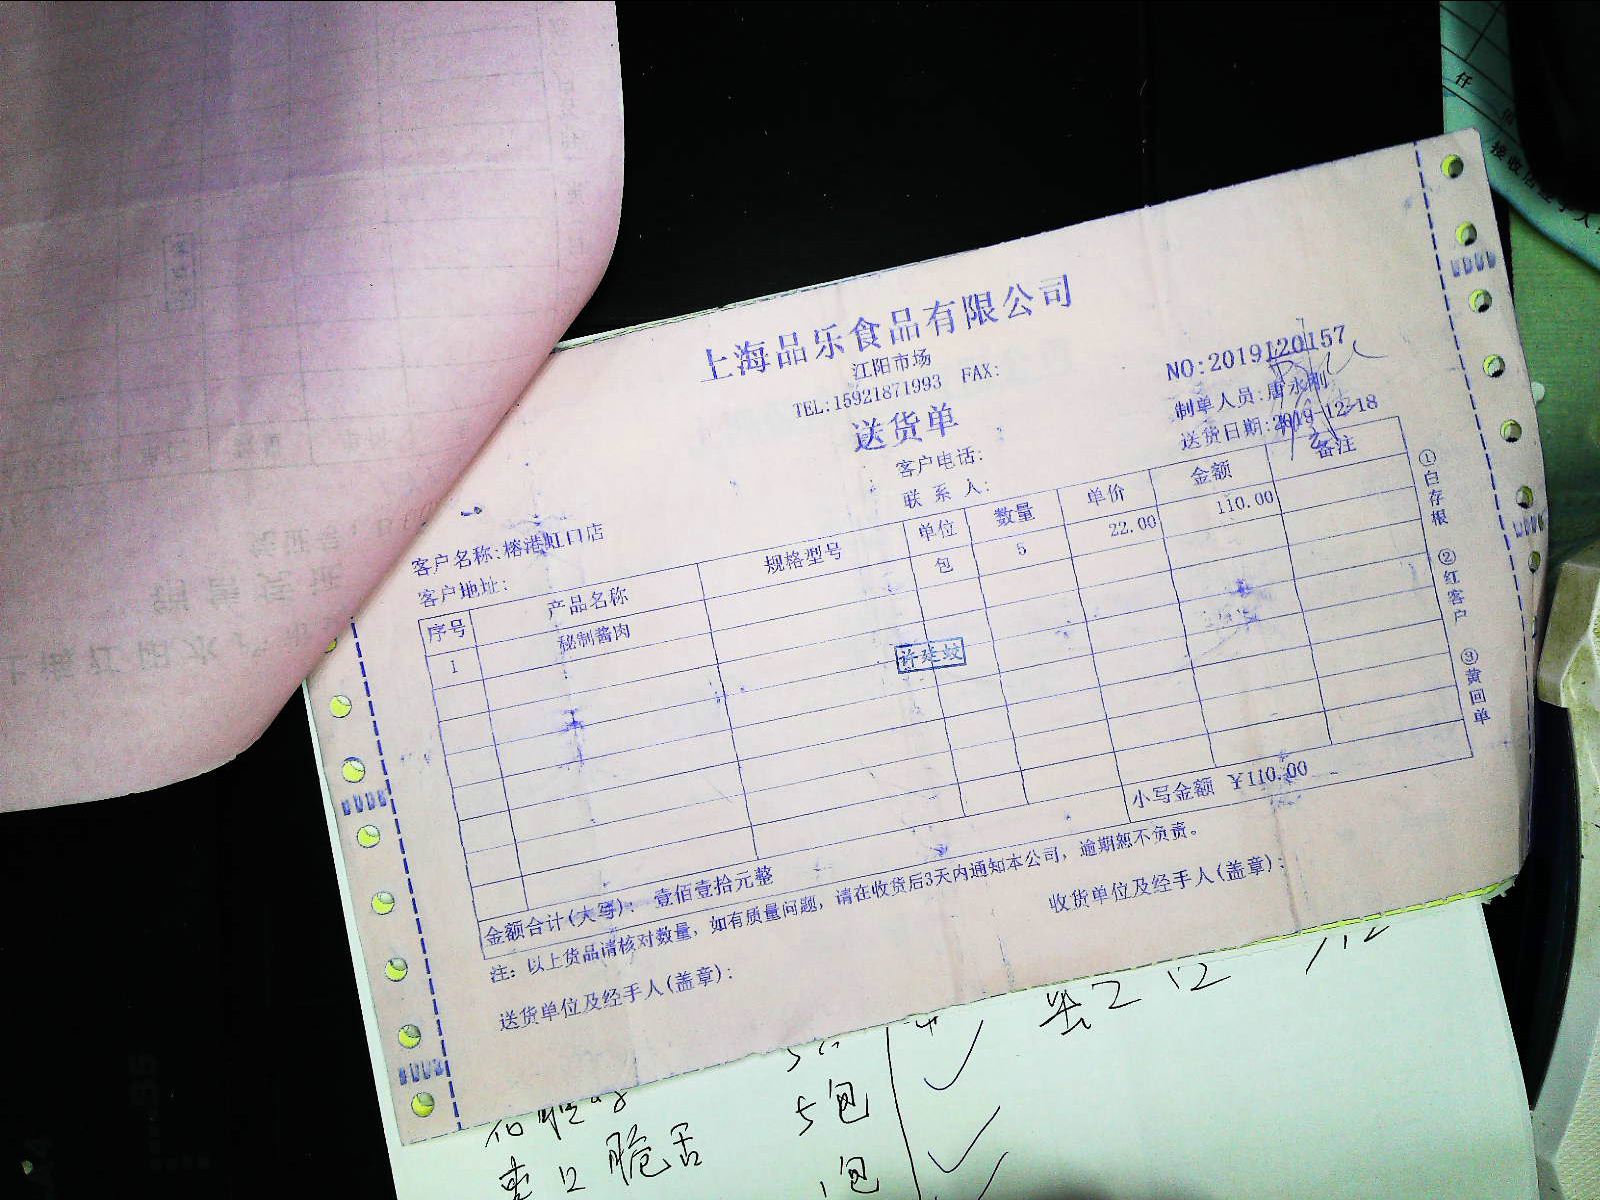 上海品乐食品有限公司
江阳市场
TEL:15921871993 FAX:
NO:2019120157
送货单
制单人员:唐永刚
客户电话:
送货日期:2019-12-18
联系人:
客户名称:榕港虹口店
客户地址:
序号 产品名称 规格型号 单位 数量 单价 金额 备注
1 秘制酱肉 包 5 22.00 110.00
许廷蛟
金额合计(大写): 壹佰壹拾元整 小写金额 ￥110.00
注: 以上货品请核对数量, 如有质量问题, 请在收货后3天内通知本公司, 逾期恕不负责。
送货单位及经手人(盖章): 收货单位及经手人(盖章):
①白存根 ②红客户 ③黄回单
5包
脆舌 1包
仟 佰